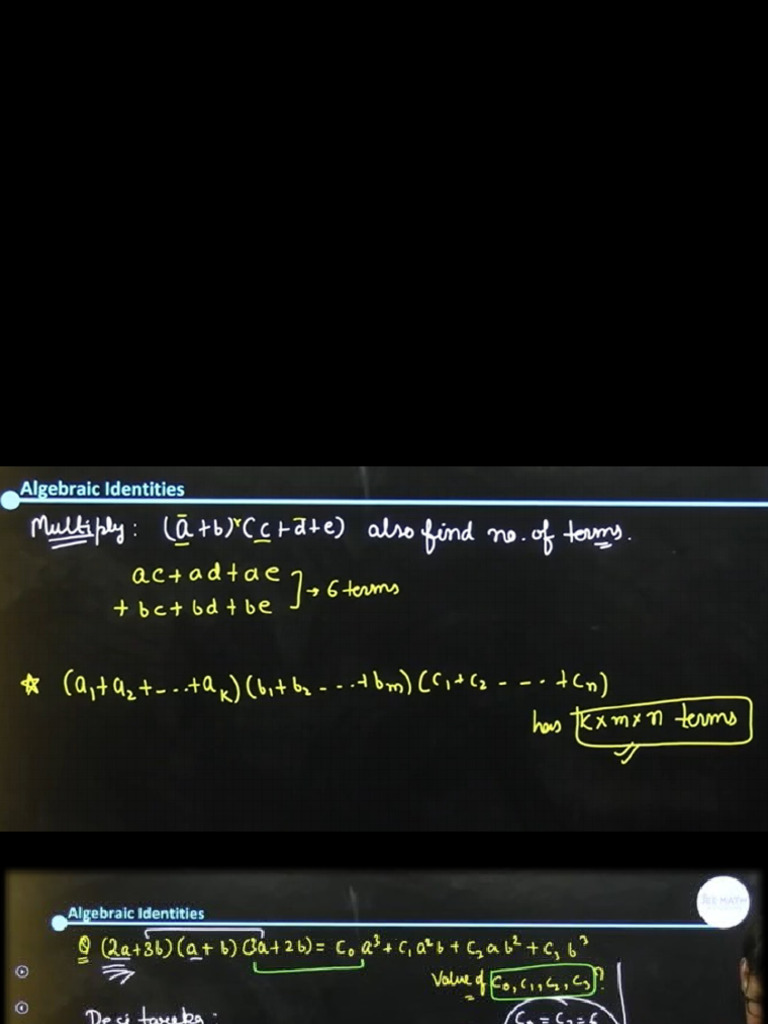 Algebraic Identities
Multiply: (a+b)×(c+d+e) also find no. of terms.
ac+ad+ae
+bc+bd+be ] → 6 terms
☆ (a₁+a₂+-..+aₖ)(b₁+b₂-...+bₘ)(c₁+c₂ - - -. +cₙ)
has k×m×n terms
JEE MATH
Algebraic Identities
Q (2a+3b)(a+b)(3a+2b) = c₀a³+c₁a²b+c₂ab²+c₃b³
Value of c₀,c₁,c₂,c₃?
Desi tareeka: